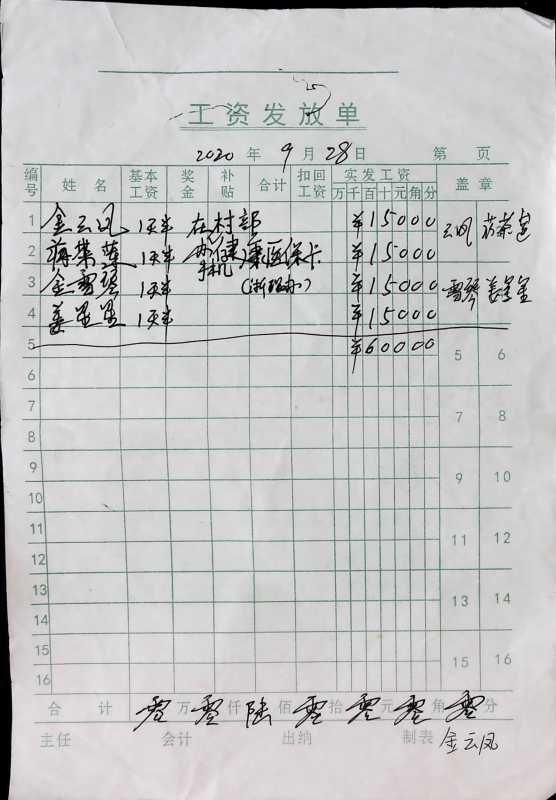 工资发放单
2020 年 9 月 28 日 第 页
编号 姓名 基本工资 奖金 补贴 合计 扣回工资 实发工资 盖章
万 千 百 十 元 角 分
1 金云凤 1天半 在村部 ¥15000 云凤
2 1天半 办健康医保卡 ¥15000
手机
3 金雪琴 1天半 (浙里办) ¥15000 雪琴
4 姜 1天半 ¥15000
5 ¥60000 5 6
6
7 7 8
8
9 9 10
10
11 11 12
12
13 13 14
14
15 15 16
16
合计 零万零仟陆佰零拾零元零角零分
主任 会计 出纳 制表 金云凤